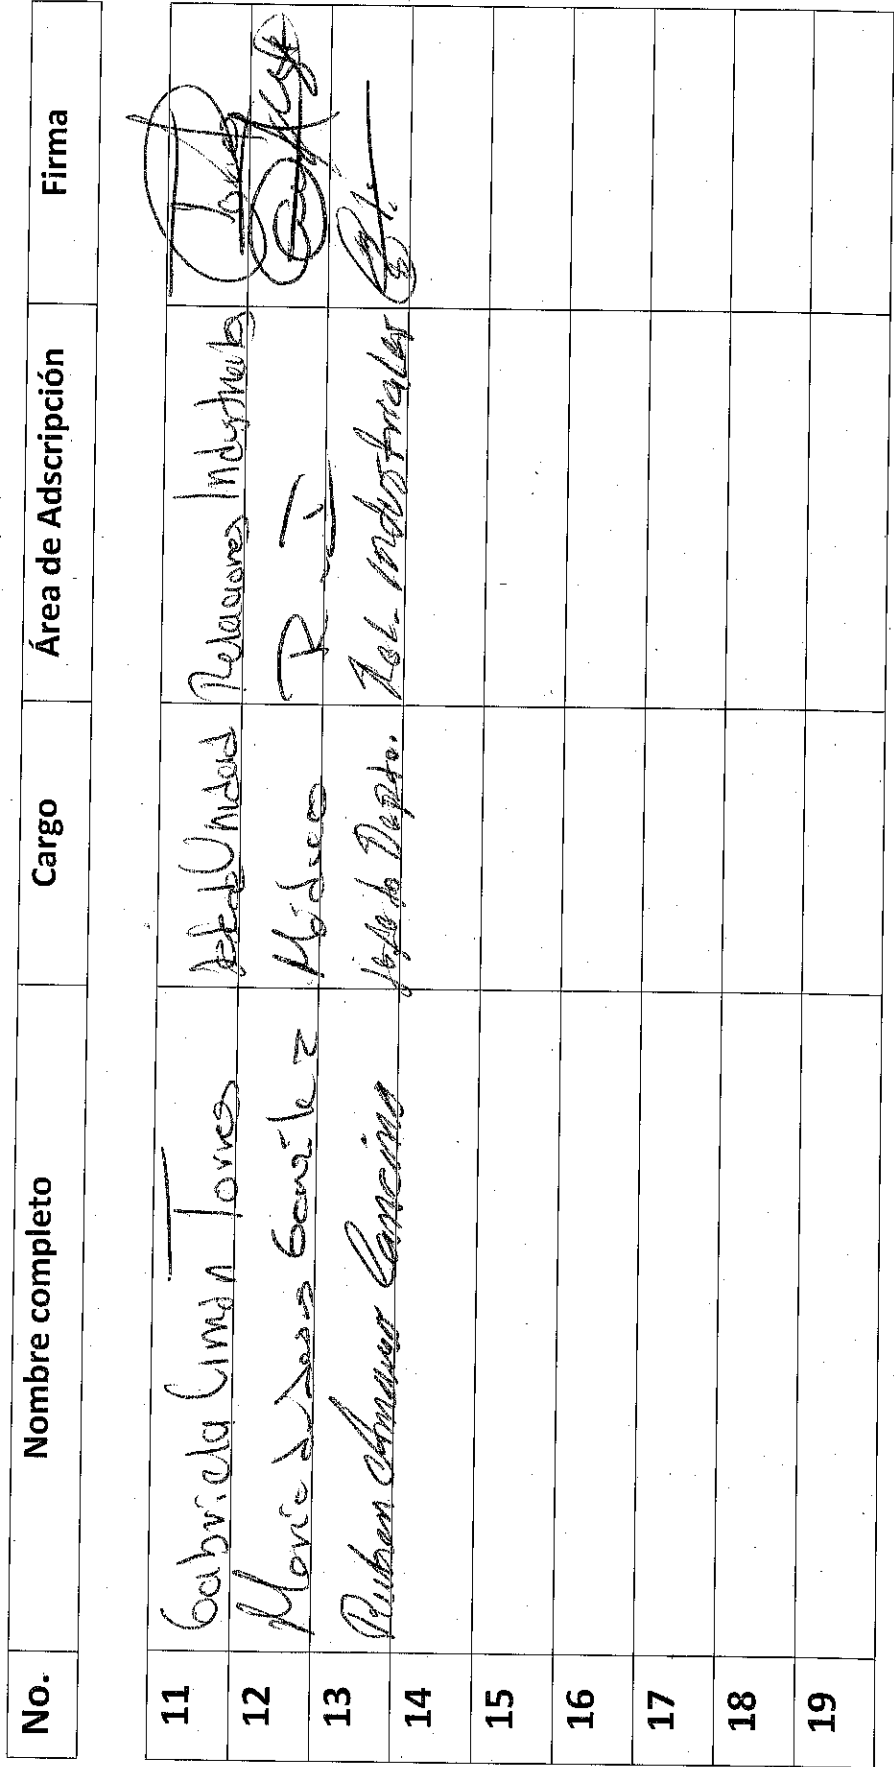 No. Nombre completo Cargo Área de Adscripción Firma
11 Gabriela Cimán Torres Jefe de Unidad Relaciones Industriales
12 María de Jesús González Médico R I
13 Ruben Amaro Cancino jefe de Depto. Rel. Industriales
14
15
16
17
18
19